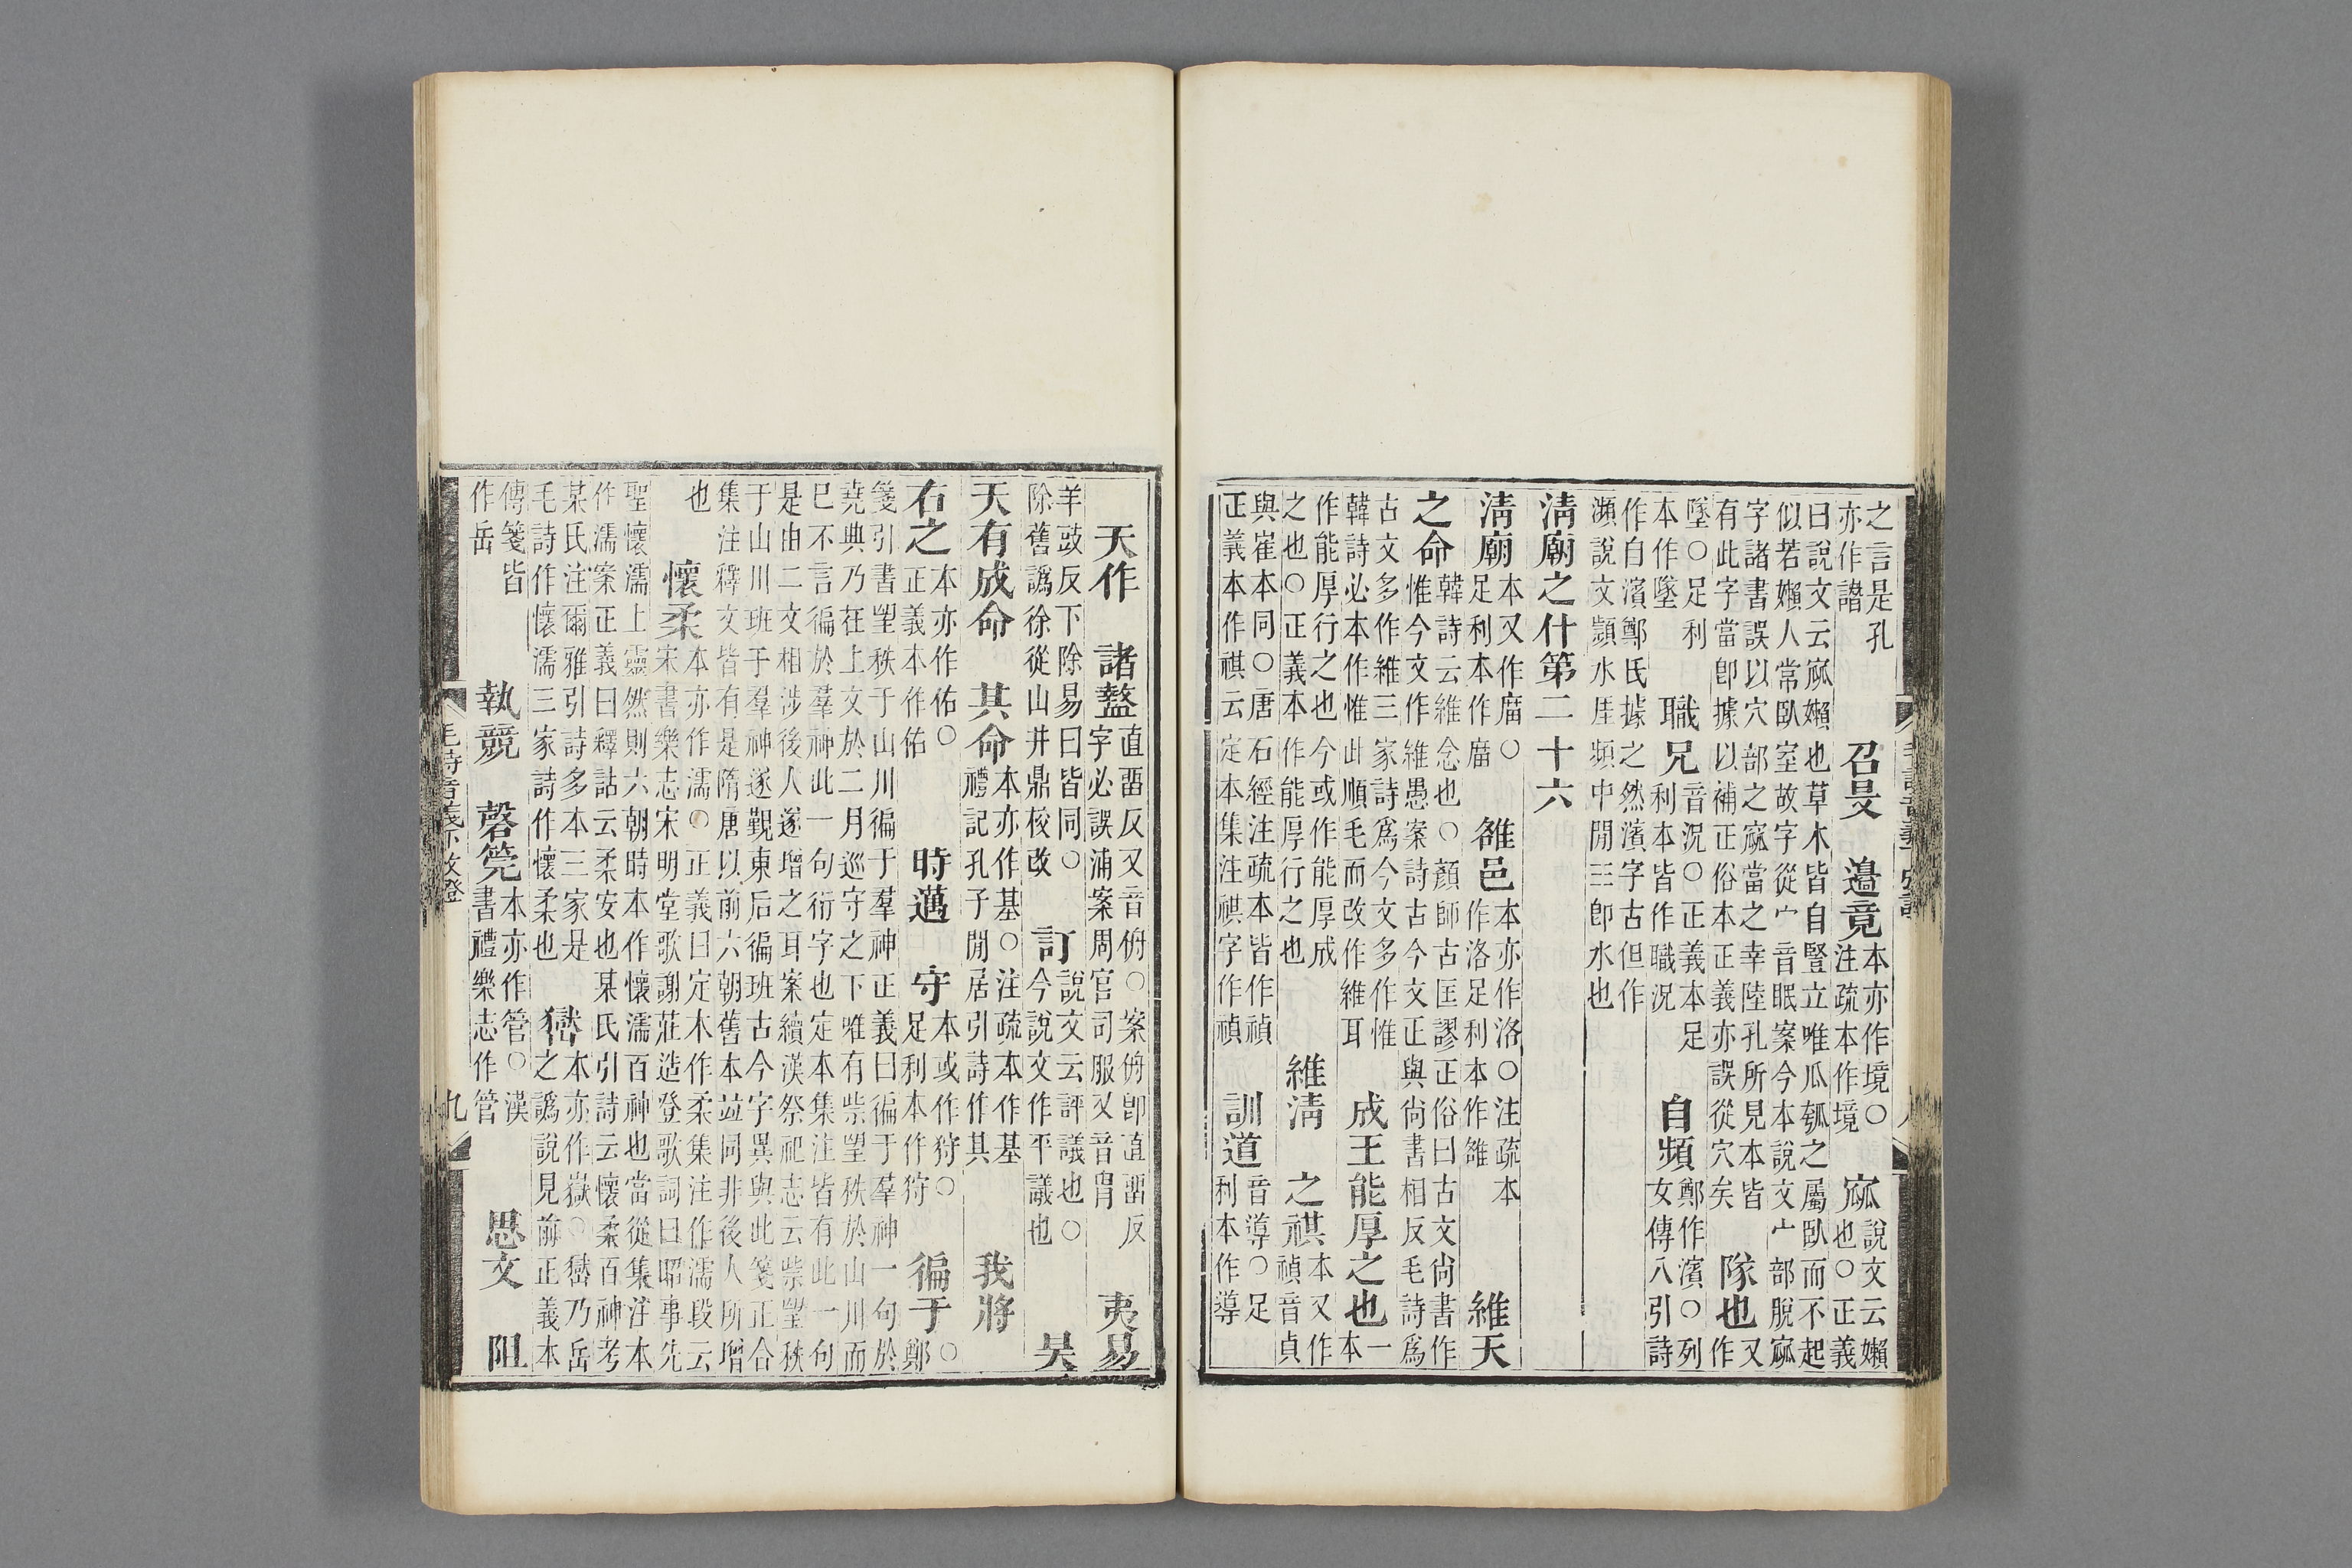 之言是孔
亦作譛　召旻　邉竟本亦作境○
注疏本作境　寙說文云嬾
也○正義
曰說文云寙嬾也草木皆自豎立唯瓜瓠之屬臥而不起
似若嬾人常臥室故字從宀音眠案今本說文宀部脫寙
字諸書誤以穴部之窳當之幸陸孔所見本皆
有此字當卽據以補正俗本正義亦誤從穴矣　隊也又
作
墜○足利
本作墜　職兄音況○正義本足
利本皆作職況　自頻鄭作濱○列
女傳八引詩
作白濱鄭氏據之然濱字古但作
瀕說文顥水厓頻中閒三卽水也
清廟之什第二十六
清廟本又作庿○
足利本作庿　雒邑本亦作洛○注疏本
作洛足利本作雒　維天
之命韓詩云維念也○顏師古匡謬正俗曰古文尙書作
惟今文作維愚案詩古今文正與尙書相反毛詩爲
古文多作維三家詩爲今文多作惟
韓詩必本作惟此順毛而改作維耳　成王能厚之也一
本
作能厚行之也今或作能厚成
之也○正義本作能厚行之也　維清　之祺本又作
禎音貞
與崔本同○唐石經注疏本皆作禎
正義本作祺云定本集注祺字作禎　訓道音導○足
利本作導
天作　諸盩直畱反又音侜○案侜卽直畱反
字必誤浦案周官司服又音胄　夷易
羊豉反下除易曰皆同○
除舊譌徐從山井鼎校改　訂說文云評議也○
今說文作平議也　昊
天有成命　其命本亦作基○注疏本作基
禮記孔子閒居引詩作其　我將
右之本亦作佑○
正義本作佑　時邁　守本或作狩○
足利本作狩　徧于○
鄭
箋引書朢秩于山川徧于羣神正義曰徧于羣神一句於
堯典乃在上文於二月巡守之下唯有柴朢秩於山川而
巳不言徧於羣神此一句衍字也定本集注皆有此一句
是由二文相涉後人遂增之耳案續漢祭祀志云柴朢秩
于山川班于羣神遂覲東后徧班古今字異與此箋正合
集注釋文皆有是隋唐以前六朝舊本竝同非後人所增
也　懷柔本亦作濡○正義曰定木作柔集注作濡段云
宋書樂志宋明堂歌謝莊造登歌詞曰昭事先
聖懷濡上靈然則六朝時本作懷濡百神也當從集注本
作濡案正義曰釋詁云柔安也某氏引詩云懷柔百神考
某氏注爾雅引詩多本三家是
毛詩作懷濡三家詩作懷柔也　巒本亦作嶽○巒乃岳
之譌說見前正義本
傳箋皆
作岳　執競　磬筦本亦作管○漢
書禮樂志作管　思文　阻
毛詩音義下攷證
九